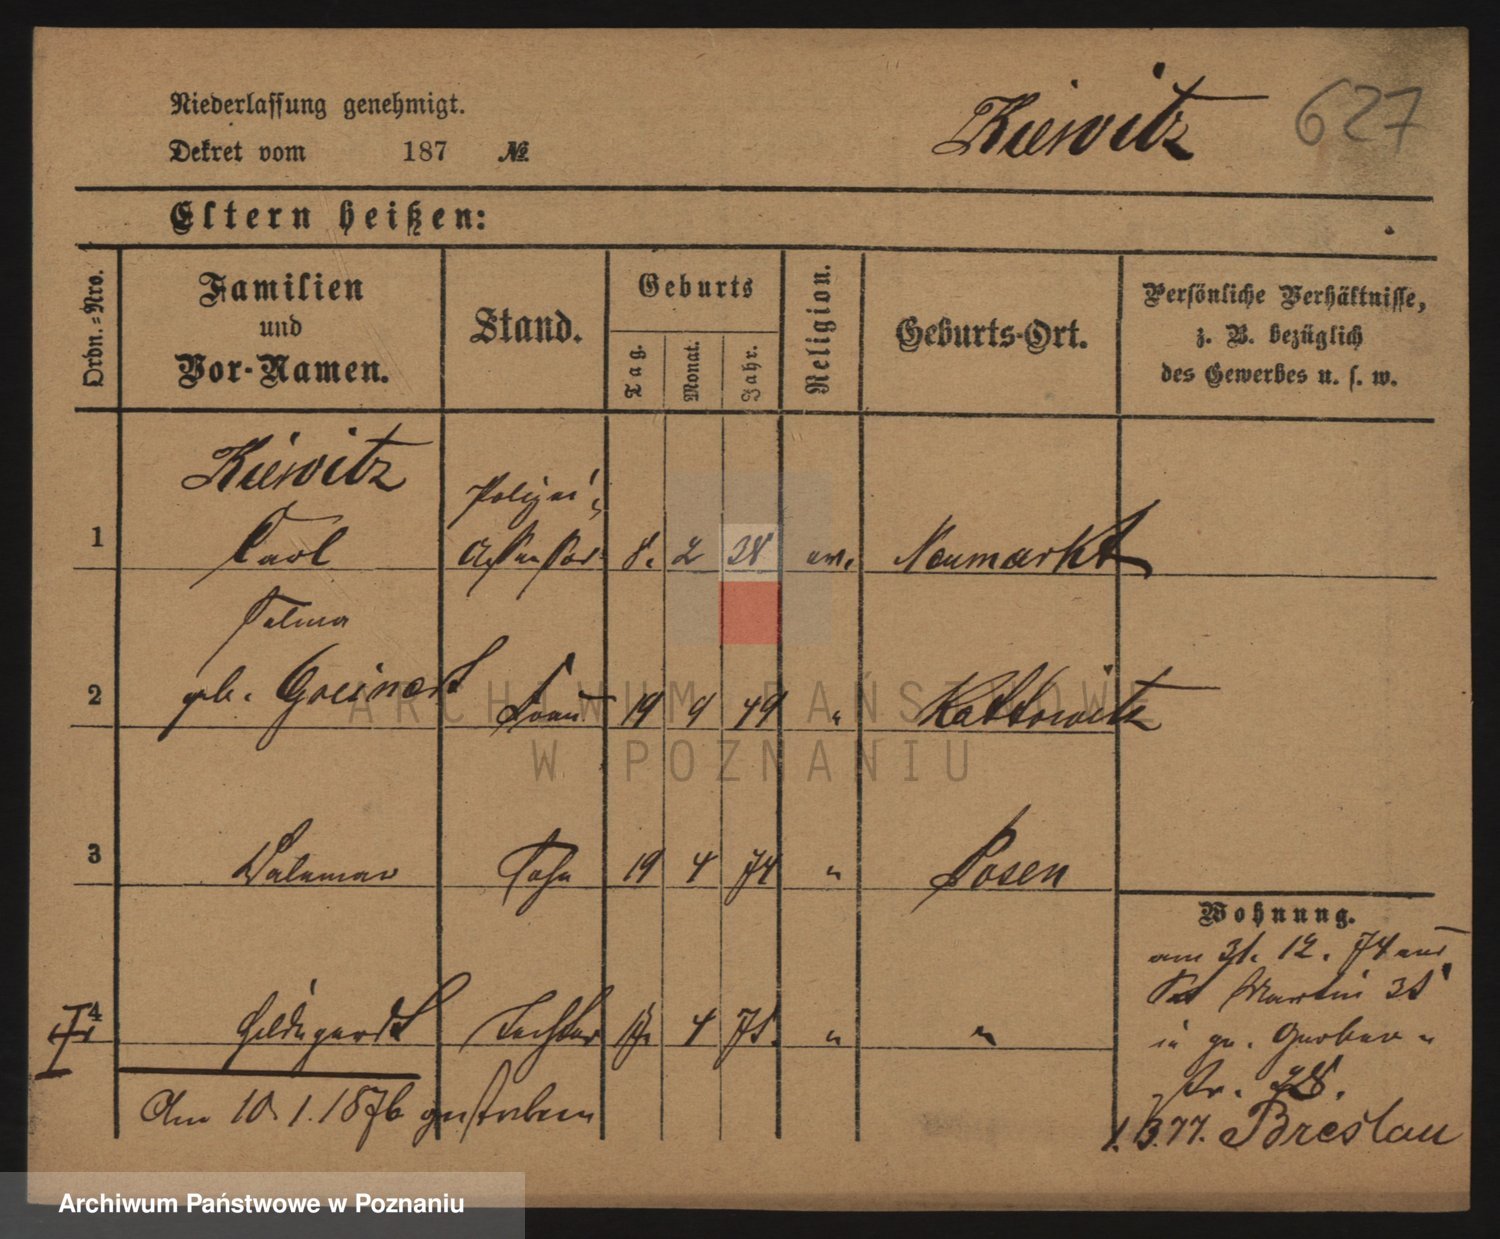 Niederlassung genehmigt.
Kiewitz
627
Dekret vom 187 №
Eltern heißen:
Ordn.-Nro.
Familien
und
Vor-Namen.
Stand.
Geburts
Tag.
Monat.
Jahr.
Religion.
Geburts-Ort.
Persönliche Verhältnisse,
z. B. bezüglich
des Gewerbes u. s. w.
Kiewitz
Polizei
1 Carl Assessor 8. 2 38 ev. Neumarkt
Selma
2 geb. Greinert Frau 19 9 49 " Kattowitz
ARCHIWUM PAŃSTWOWE
W POZNANIU
3 Waldemar Sohn 19 4 74 " Posen
Wohnung.
am 31. 12. 74 aus
St Martin
4 Hildegardt Tochter 4 75. " "
in gr. Gerber -
str.
Am 10. 1. 1876 gestorben
1. 3. 77. Breslau
Archiwum Państwowe w Poznaniu